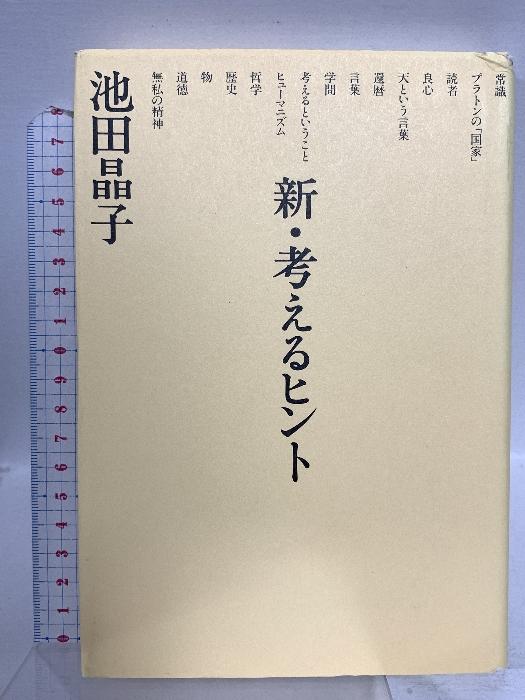 常識
プラトンの「国家」
読者
良心
天という言葉
還暦
言葉
学問
考えるということ
ヒューマニズム
哲学
歴史
物
道徳
無私の精神
新・考えるヒント
池田晶子
0 1 2 3 4 5 6 7 8 9 0 1 2 3 4 5 6 7 8